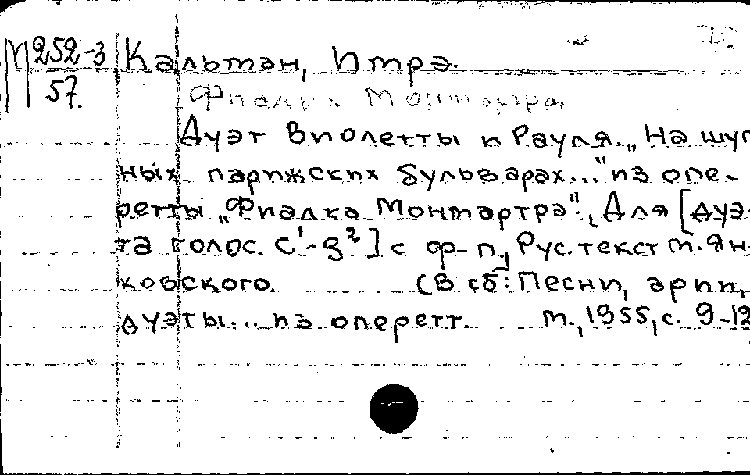 М 252-3 Кальман, Имрэ.
57. Фиалка Монмартра
Дуэт Виолетты и Рауля. „На шум-
ных парижских бульварах..." из опе-
ретты „Фиалка Монмартра". Для [дуэ-
та голос. c¹-g²] с ф-п. Рус. текст М. Ян-
ковского. (В сб: Песни, арии,
дуэты... из оперетт. М., 1955, с. 9-12